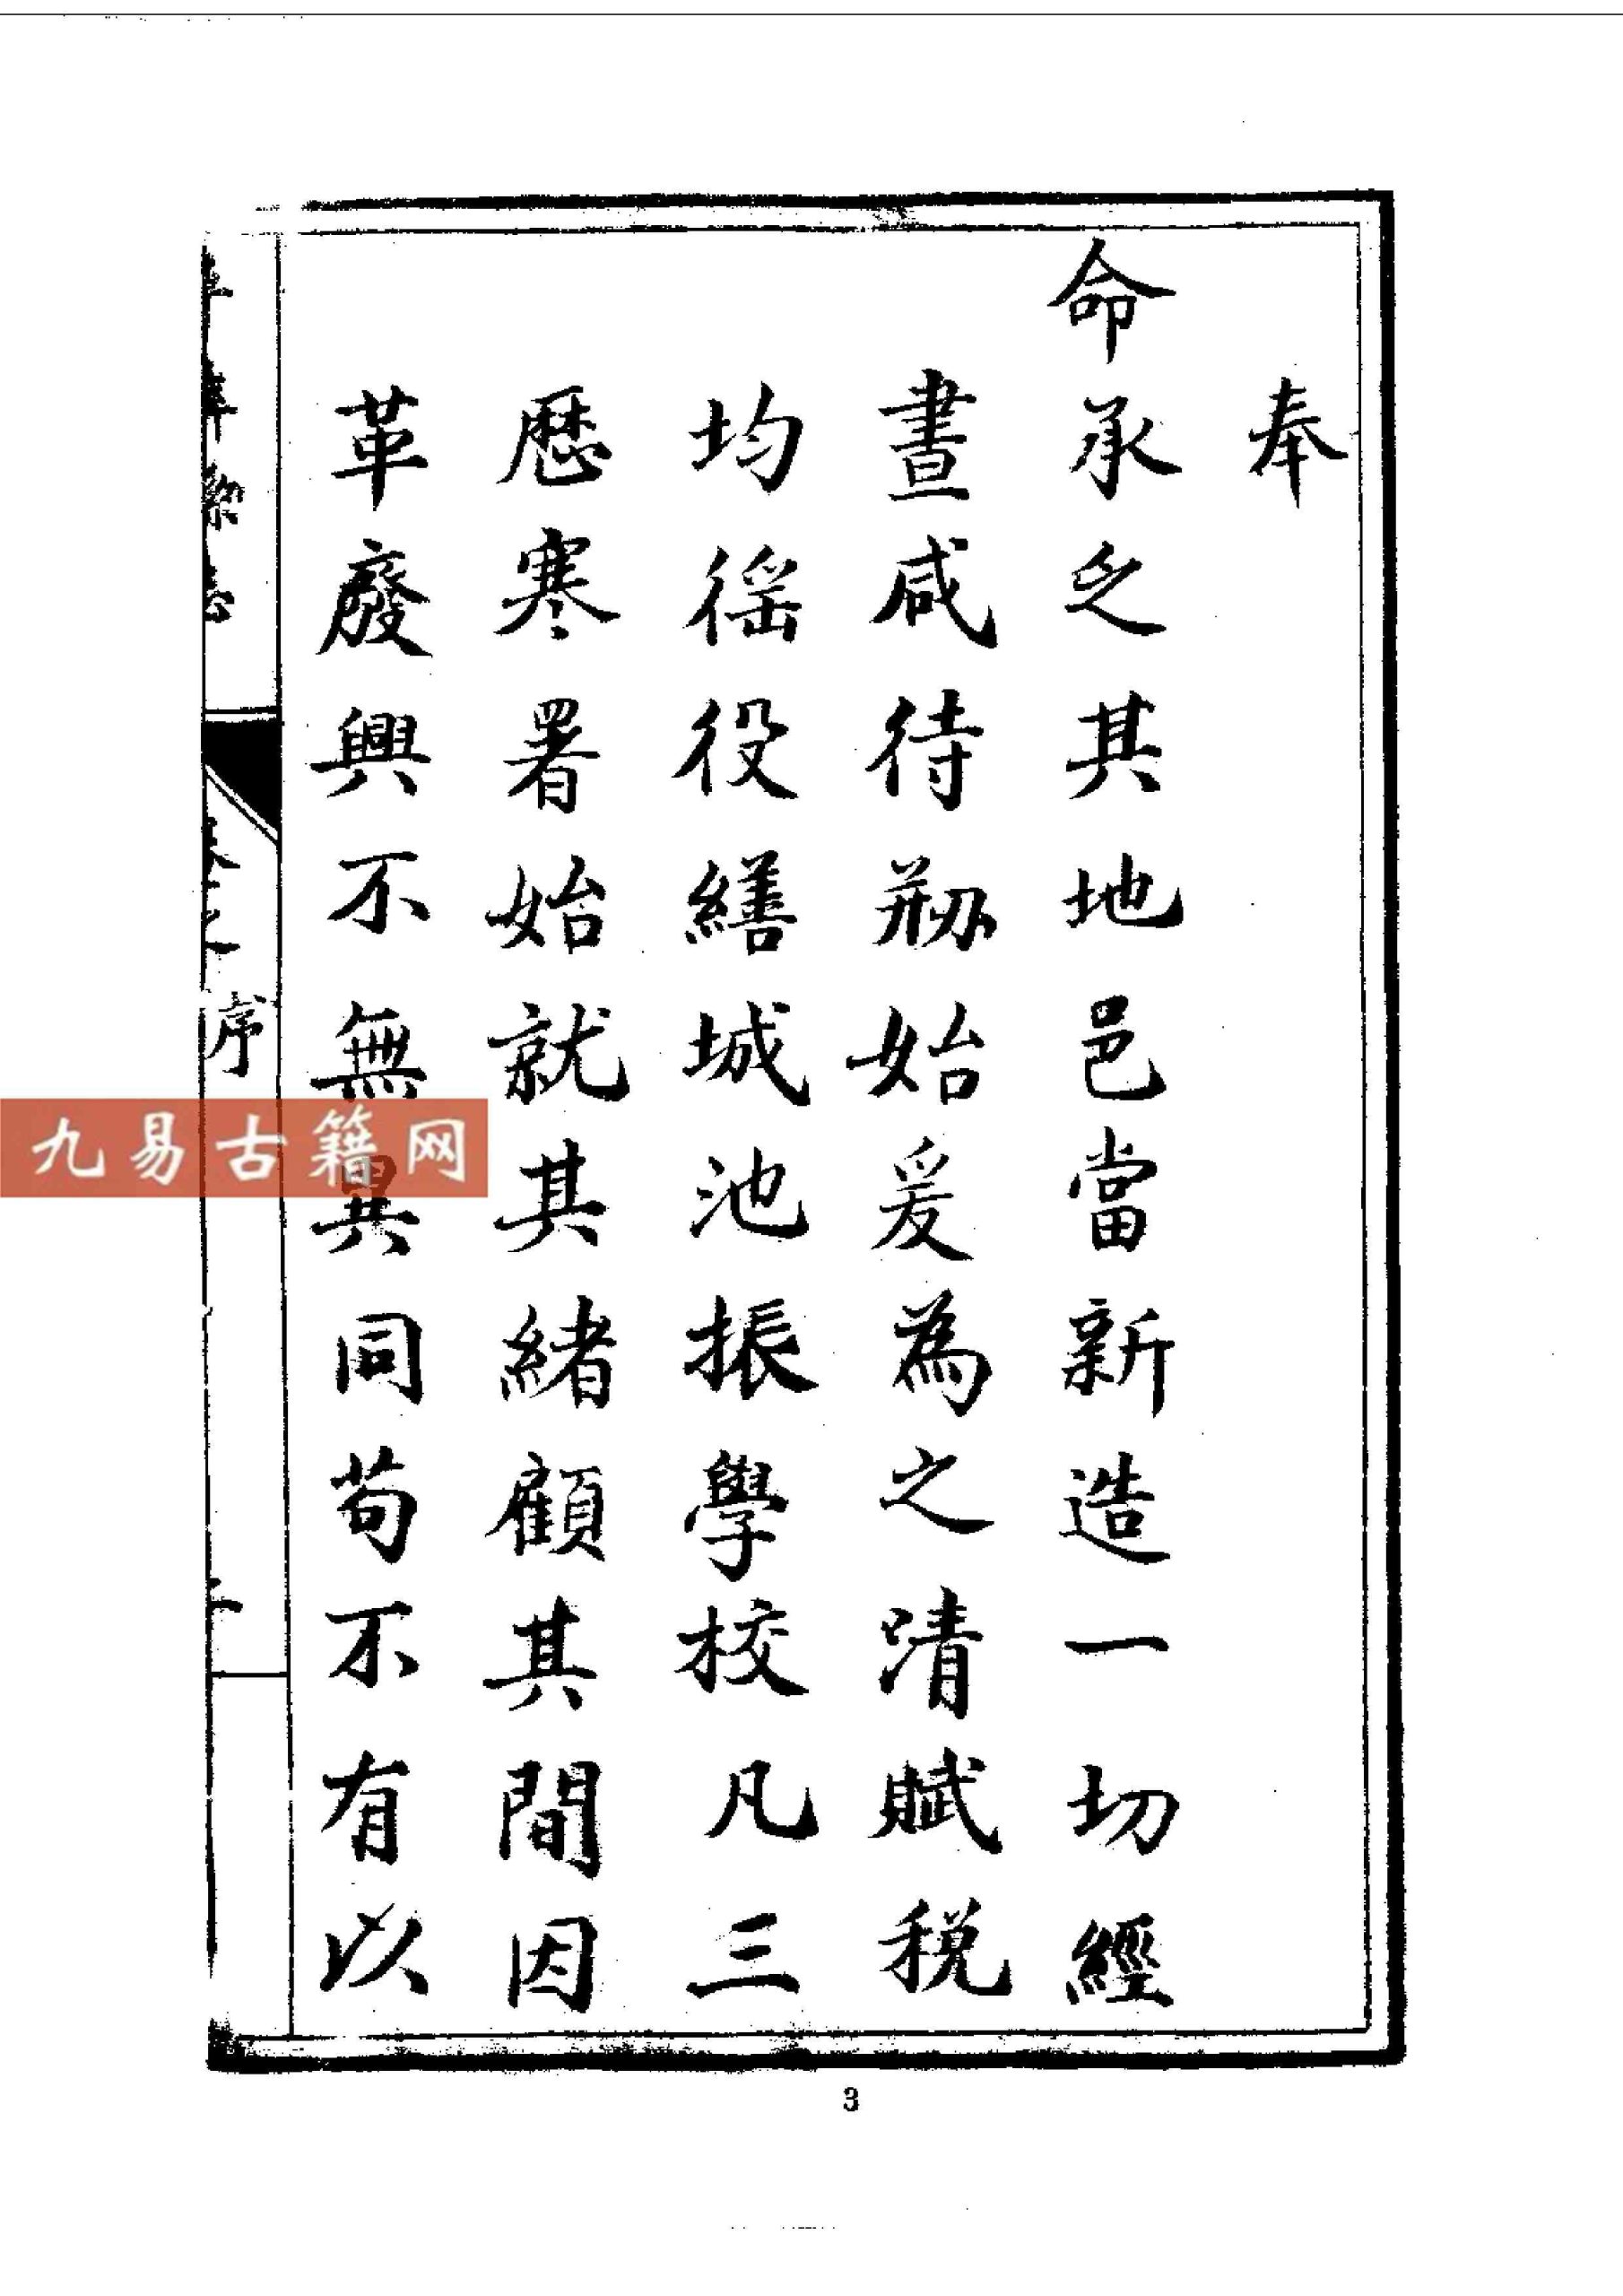 奉
命承之其地邑當新造一切經
畫咸待剏始爰為之清賦税
均徭役繕城池振學校凡三
歷寒署始就其緒顧其間因
革廢興不無異同苟不有以
序
九易古籍网
3